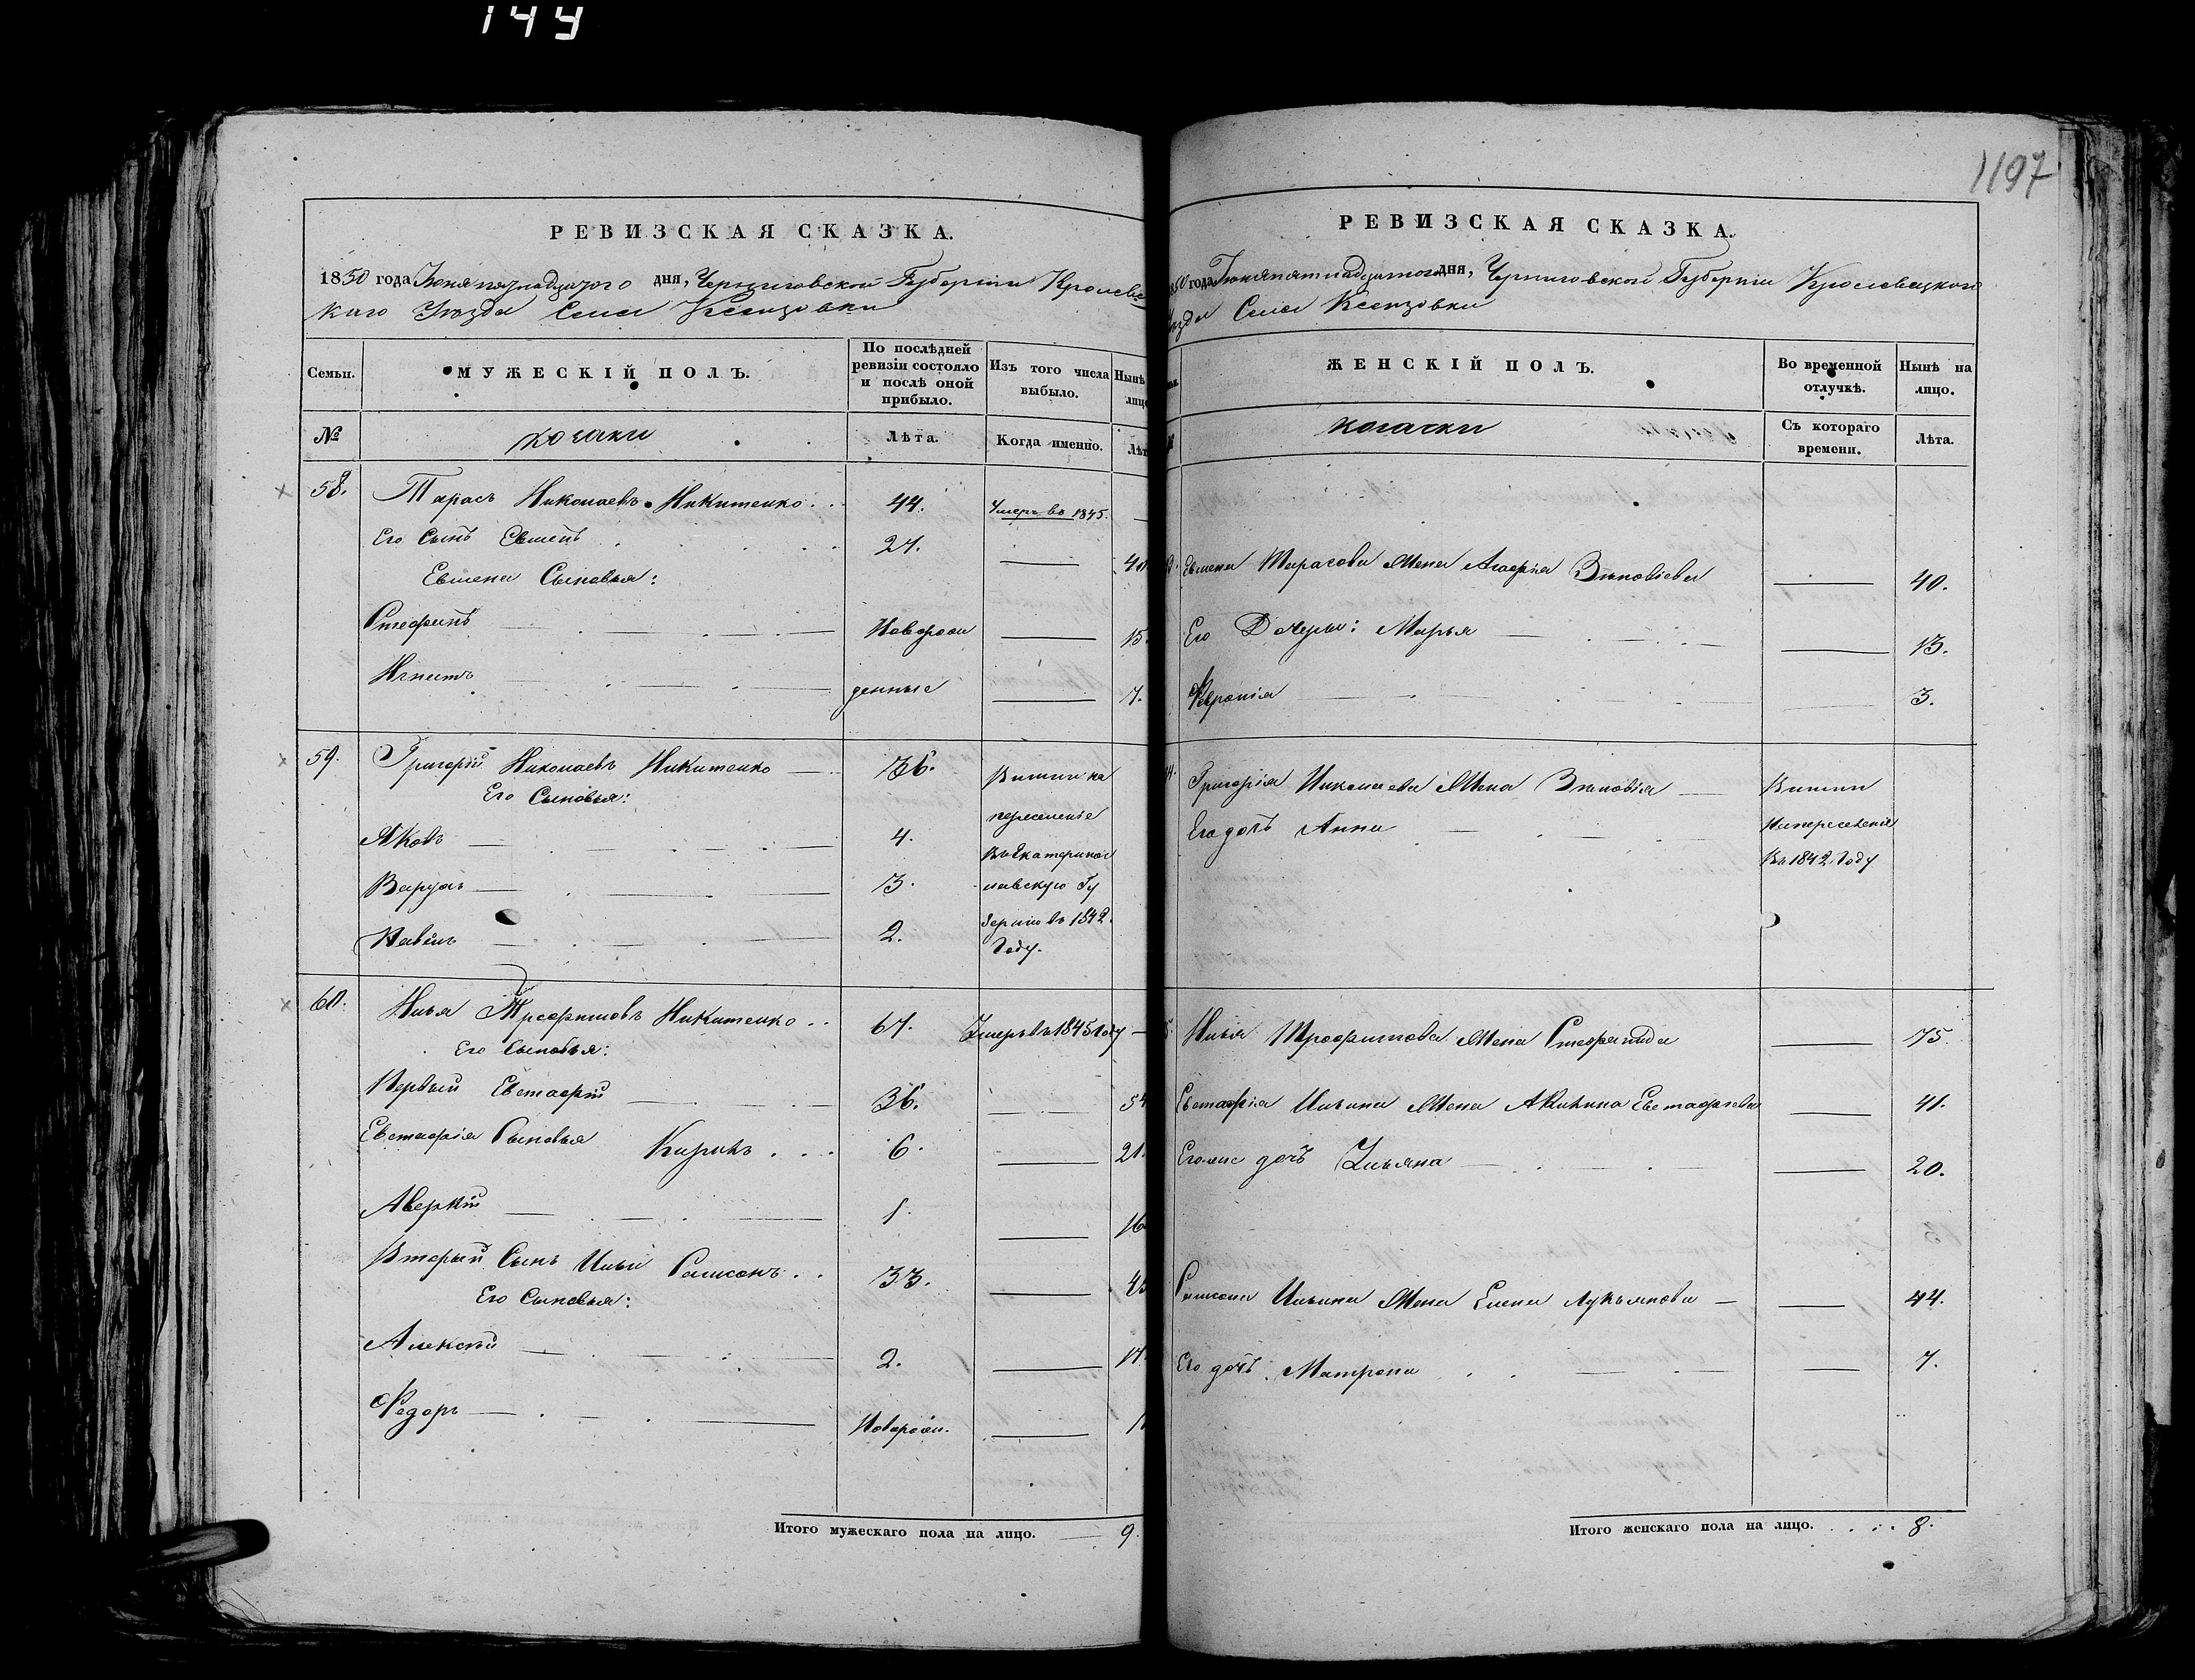 144
1197
РЕВИЗСКАЯ СКАЗКА.
1850 года Іюня пятнадцатого дня, Черниговской Губерніи Кролевец
каго Уѣзда Села Ксензовки
Семьи.
МУЖЕСКІЙ ПОЛЪ.
По послѣдней ревизіи состояло и послѣ оной прибыло.
Изъ того числа выбыло.
Нынѣ лицо
№
козаки
Лѣта.
Когда именно.
Лѣт
58. Тарасъ Николаевъ Никитенко 44. Умеръ въ 1845. —
Его Сынъ Евменъ 27. — 40
Евмена Сыновья:
Стефанъ Новорож — 15.
Игнатъ денные — 7.
59. Григорій Николаевъ Никитенко 36. Вышли на
Его Сыновья: переселеніе
Яковъ 4. въ Екатеринос
3. лавскую Гу
Павелъ 2. бернію въ 1842.
Году.
60. Илья Трофимовъ Никитенко 67. Умеръ въ 1845 Году —
Его Сыновья:
Первый Евстафій 36. — 5
Евстафія Сыновья Кирикъ 6. — 21.
Аверкій 1. — 16
Вторый Сынъ Ильи Самсонъ 33. — 4
Его Сыновья:
Алексѣй 2. — 17.
Федоръ Новорож. — 1
Итого мужескаго пола на лицо. 9.
РЕВИЗСКАЯ СКАЗКА.
850 года Іюня пятнадцатого дня, Черниговской Губерніи Кролевецкого
ѣзда Села Ксензовки
ЖЕНСКІЙ ПОЛЪ.
Во временной отлучкѣ.
Нынѣ на лицо.
козачки
Съ котораго времени.
Лѣта.
Евмена Тарасова Жена Агафія Зѣновіева — 40.
Его Дочери: Марья — 13.
Февронія — 3.
Григорія Николаева Жена Зѣновія — Вышли
Его дочь Анна напереселеніе
Въ 1842 Году
Ильи Трофимова Жена Стефанида — 75.
Евстафія Ильина Жена Акилина Евстафіева — 41.
Егоже дочь Ульяна — 20.
Самсона Ильина Жена Елена Лукьянова — 44.
Его дочь Матрона — 7.
Итого женскаго пола на лицо. 8.